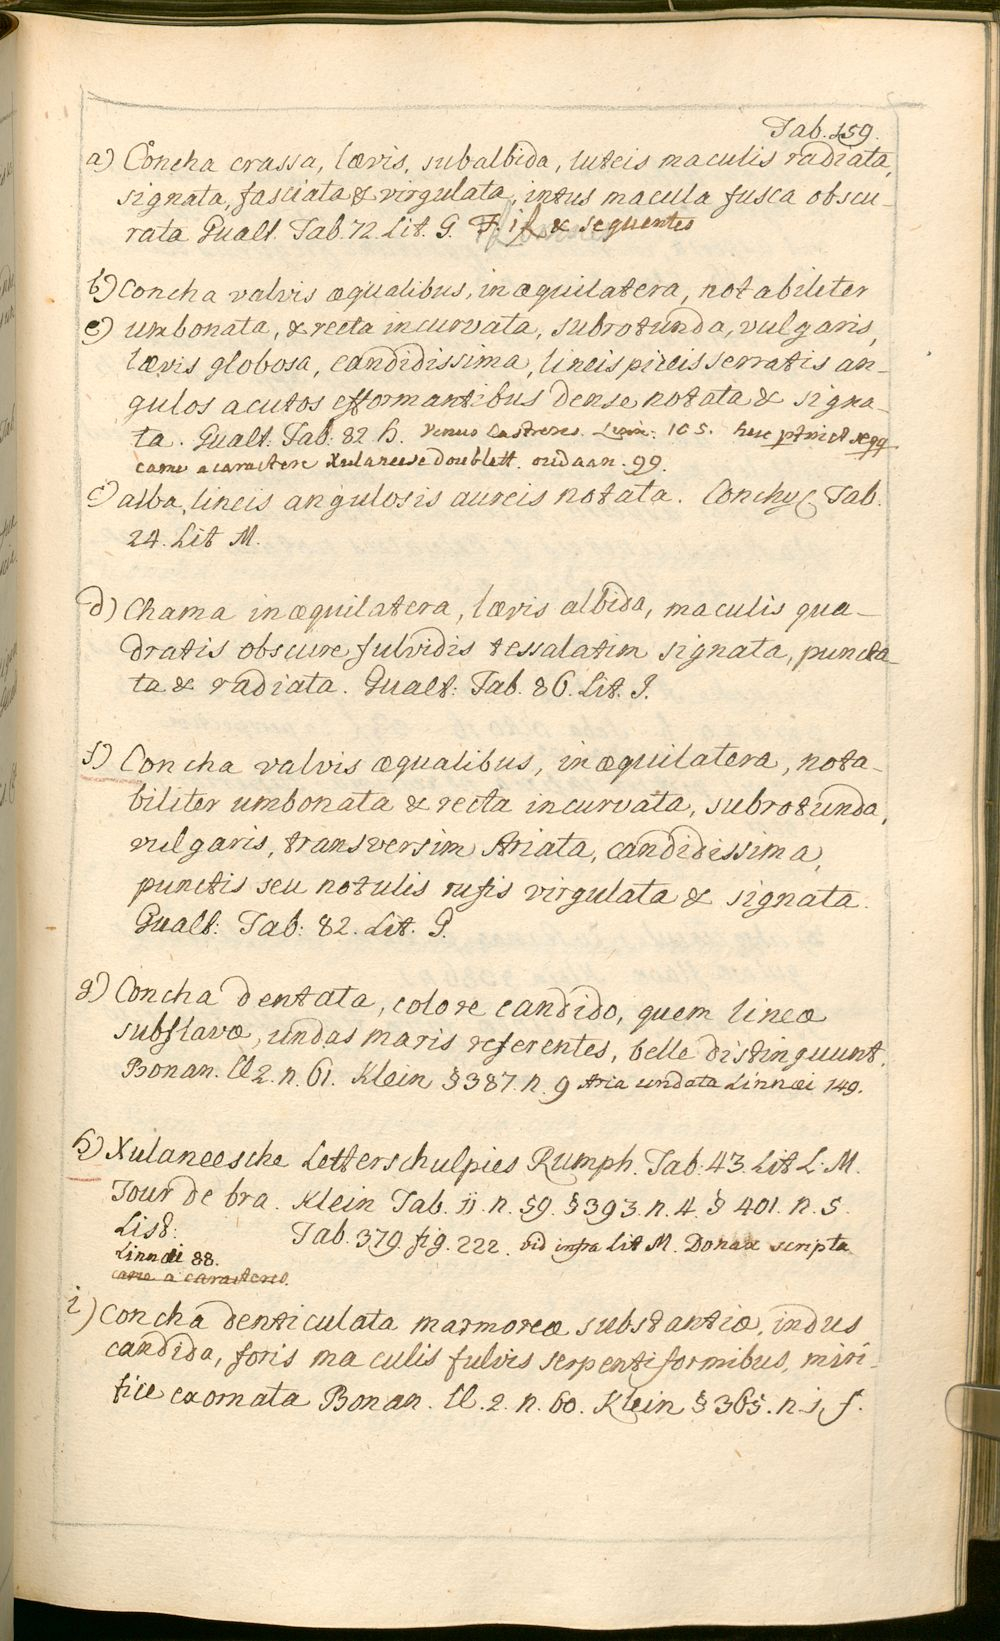 Tab. 159.
a) Concha crassa, lævis, subalbida, luteis maculis radiata,
signata, fasciata & virgulata, intus macula fusca obscu-
rata Gualt. Tab. 72. Lit. G. & sequentes
b) Concha valvis æqualibus, inæquilatera, notabiliter
e) umbonata, & recta incurvata, subrotunda, vulgaris,
lævis globosa, candidissima, lineis piceis serratis an-
gulos acutos efformantibus dense notata & signa-
ta. Gualt: Tab: 82 h. Venus Castrensis. Linn: 105.
came a caractere Xulaneese doublett. oudaan. 99.
c) alba, lineis angulosis aureis notata. Conchyl Tab.
24. Lit M.
d) Chama inæquilatera, lævis albida, maculis qua-
dratis obscure fulvidis tessalatim signata, puncta-
ta & radiata. Gualt: Tab. 86. Lit. I.
f) Concha valvis æqualibus, inæquilatera, nota-
biliter umbonata & recta incurvata, subrotunda,
vulgaris, transversim striata, candidissima,
punctis seu notulis rufis virgulata & signata.
Gualt: Tab: 82. Lit. I.
g) Concha dentata, colore candido, quem lineæ
subflavæ, undas maris referentes, belle distinguunt.
Bonan. Cl 2. n. 61. Klein § 387. n. 9 undata Linnæi 149.
h) Xulaneesche Letterschulpies Rumph. Tab. 43. Lit L. M.
Tour de bra. Klein Tab. 11. n. 59. § 393. n. 4. § 401. n. 5.
List: Tab. 379. fig. 222. vid infra Lit M. Donax scripta
Linnæi 88.
came a caracteres.
i) Concha denticulata marmoreæ substantiæ, indus
candida, foris maculis fulvis serpentiformibus, miri-
fice exornata Bonan. Cl. 2. n. 60. Klein § 365. n. 1, f.